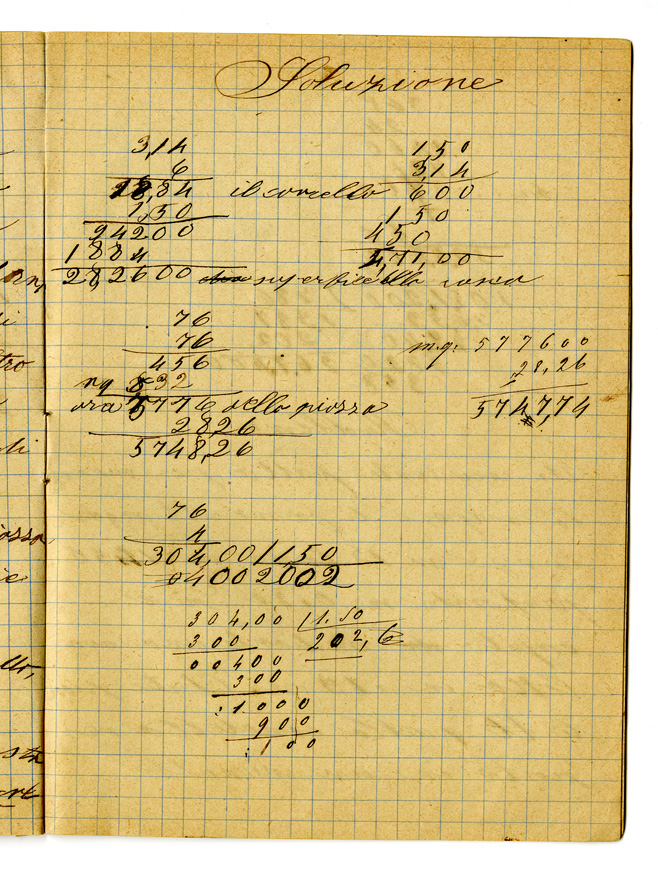 Soluzione
3,14
6
18,84 il
1,50
94200
1884
282600
150
3,14
600
150
450
4,71,00
76
76
456
mq 532
5776 della piazza
2826
5748,26
mq. 577600
28,26
5747,74
76
4
304,00 | 1,50
04002002
304,00 | 1.50
300 202,6
00400
300
1000
900
100